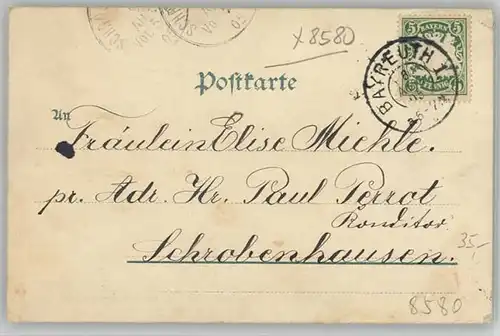 x 8580
BAYERN
5 5
PFENNIG
BAYREUTH 1
Postkarte
An
Fräulein Elise Miehle.
pr. Adr. Hr. Paul Perrot
Konditor
Schrobenhausen.
35,-
8580